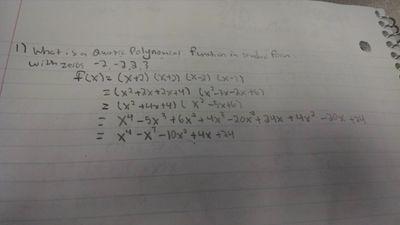 1) What is a Quartic Polynomial function in standard form
with zeros -2, -2, 3, 3
f(x) = (x+2) (x+2) (x-2) (x-1)
= (x²+2x+2x+4) (x²-3x-2x+6)
= (x²+4x+4) (x²-5x+6)
= x⁴-5x³+6x²+4x³-20x²+24x+4x²-20x+24
= x⁴-x³-10x²+4x+24